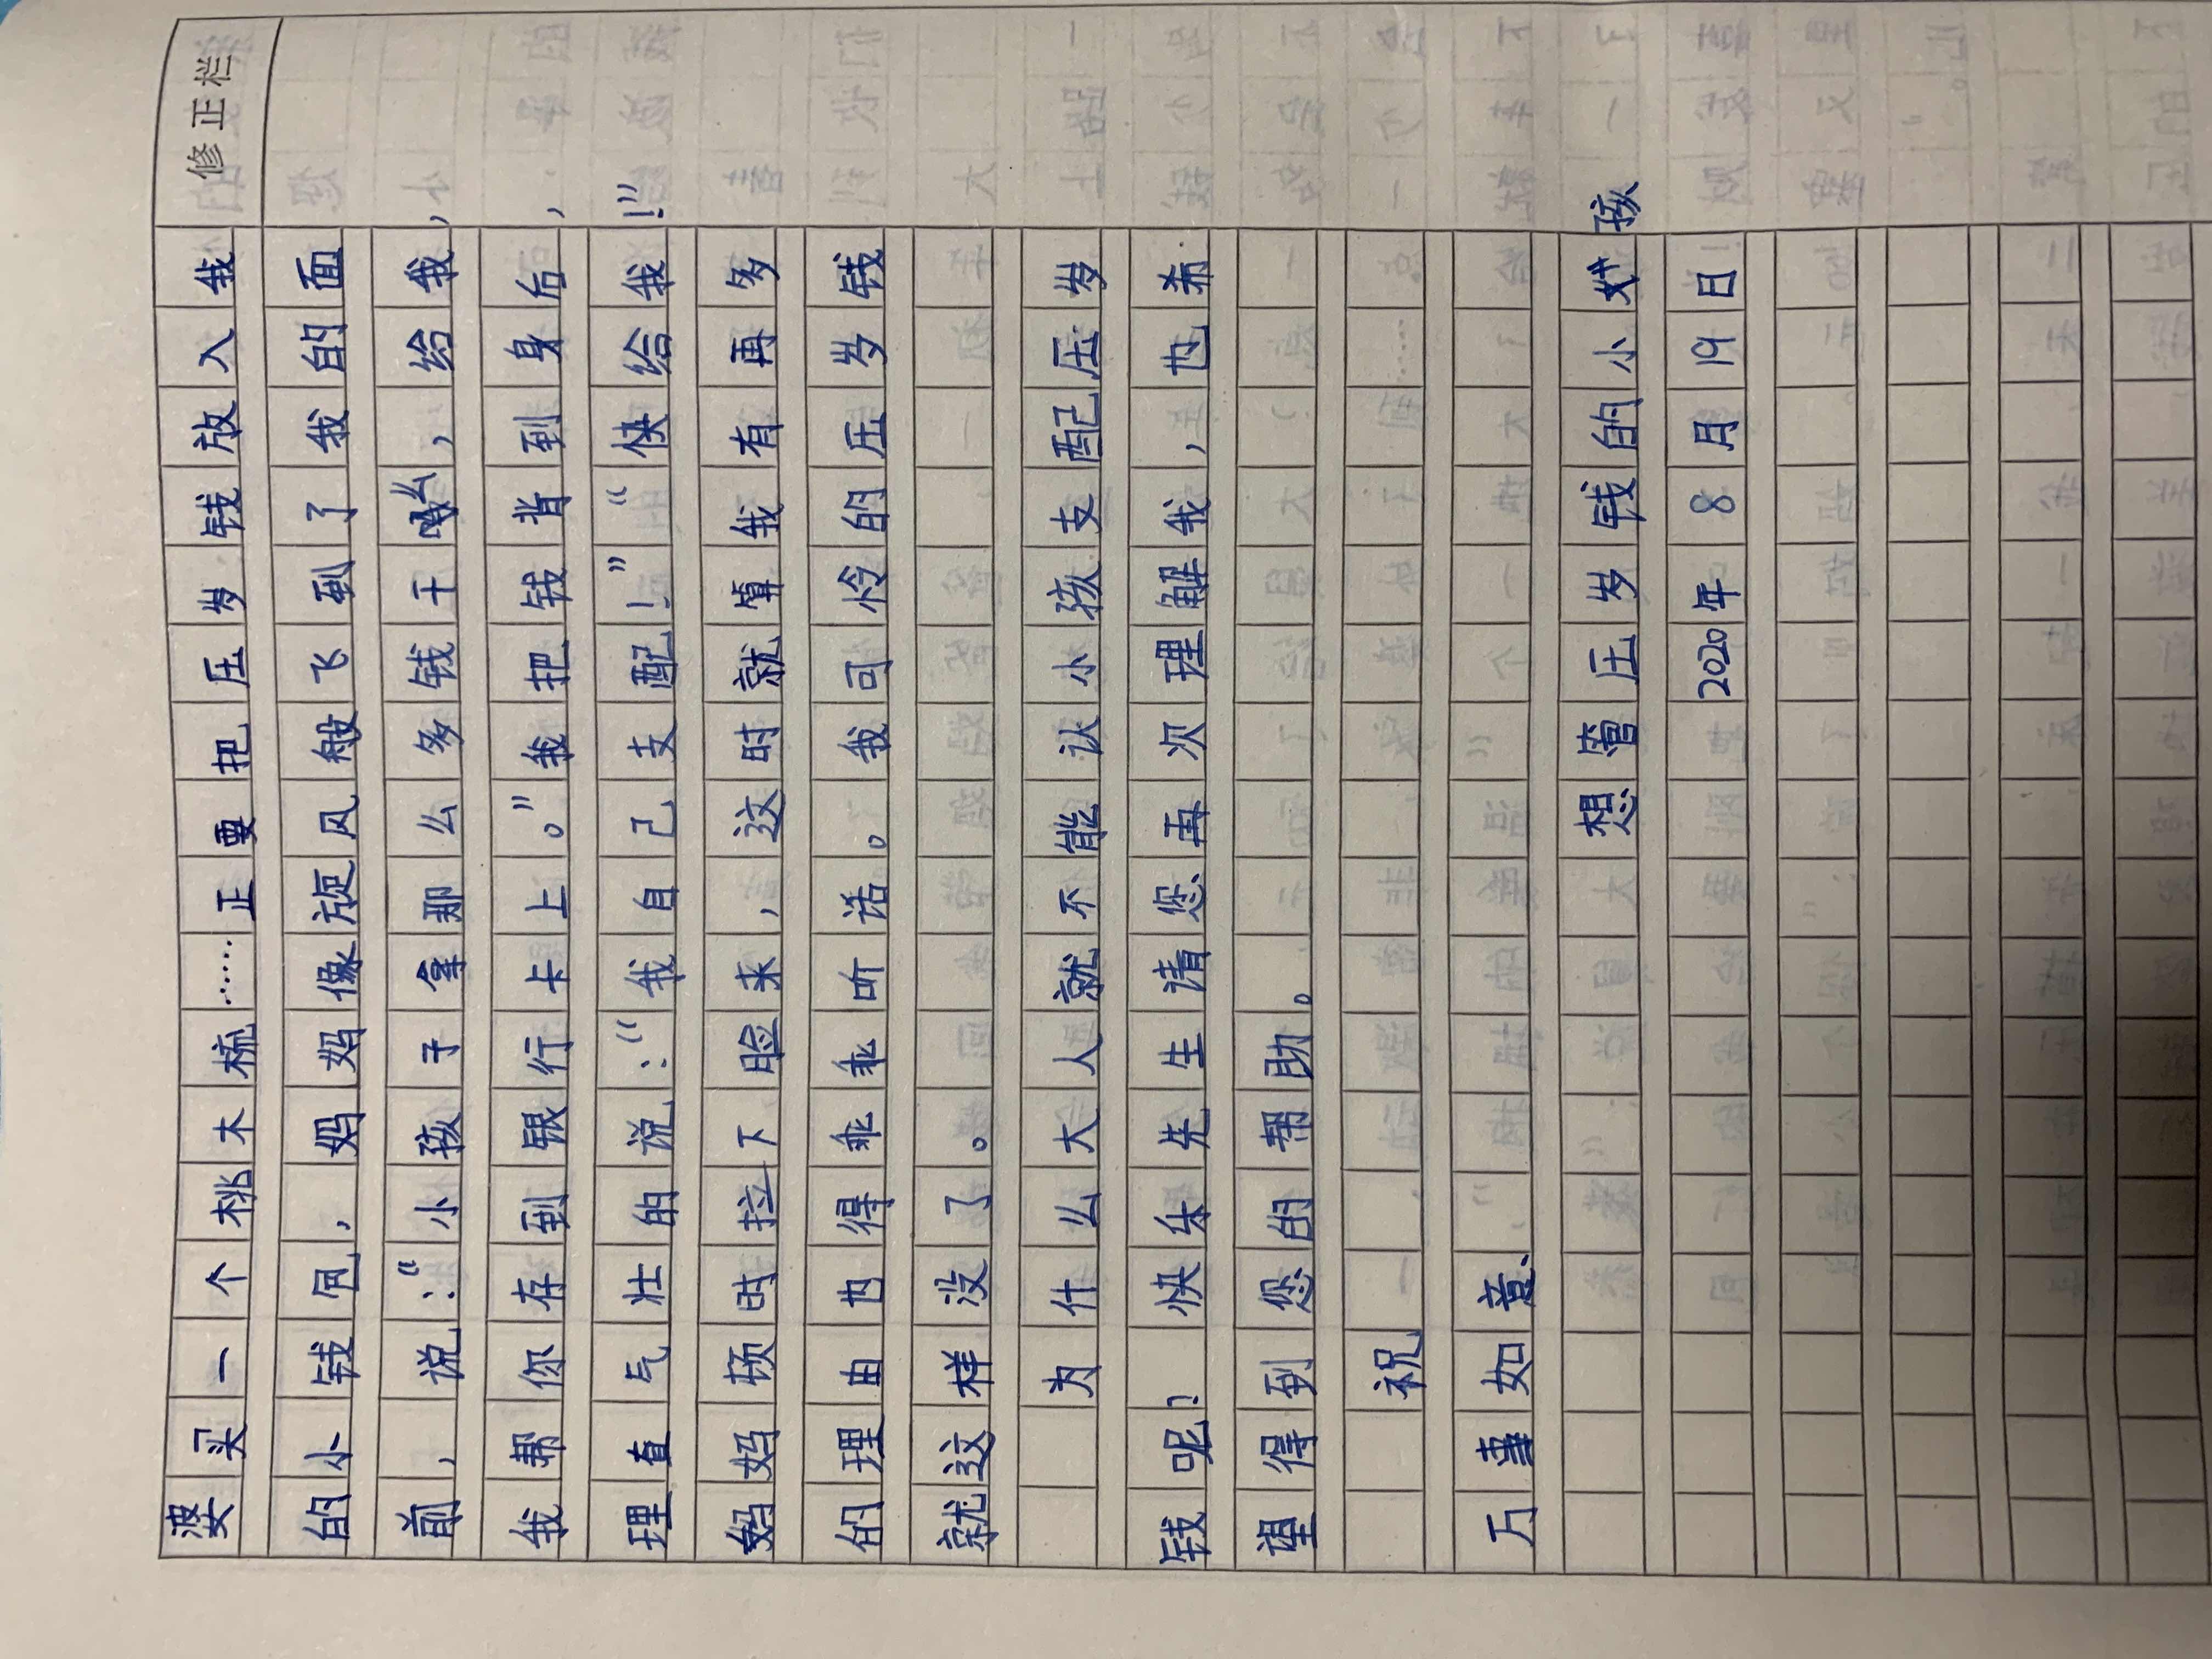 修正栏
婆买一个桃木梳……正要把压岁钱放入我
的小钱包，妈妈像旋风般飞到了我的面
前，说：“小孩子拿那么多钱干么，给我，
我帮你存到银行卡上。”我把钱背到身后，
理直气壮的说：“我自己支配！”“快给我！”
妈妈顿时拉下脸来，这时就算我有再多
的理由也得乖乖听话。我可怜的压岁钱
就这样没了。
为什么大人就不能让小孩支配压岁
钱呢？快乐先生请您再次理解我，也希
望得到您的帮助。
祝
万事如意、
想管压岁钱的小孩
2020年8月19日